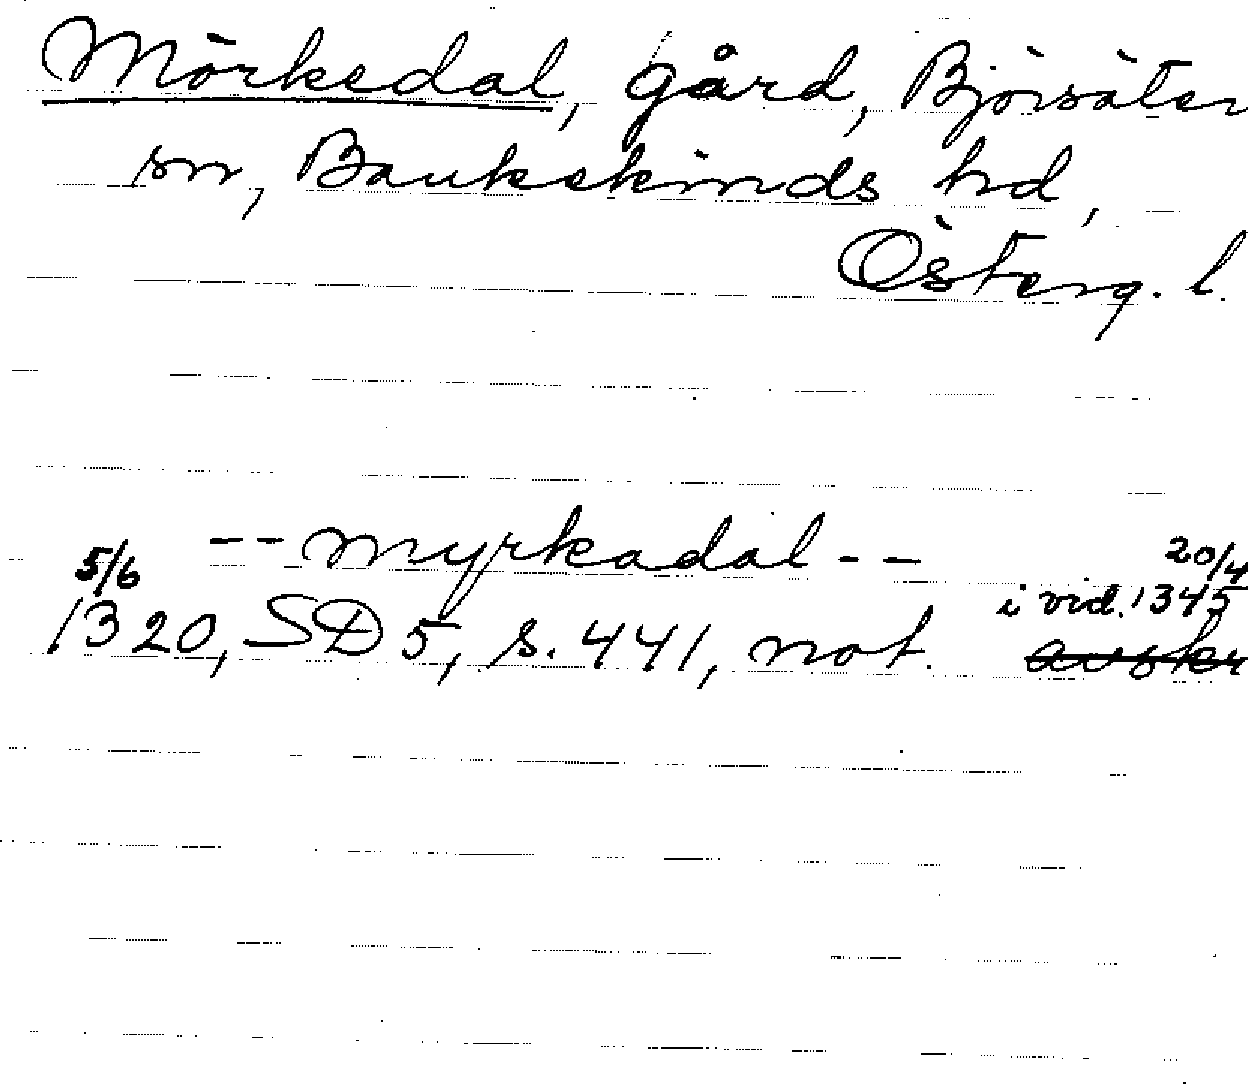 Mörkedal, gård, Björsäter
sn, Bankekinds hd,
Österg. l.
-- myrkadal --
5/6 20/4
i vid. 1345
1320, SD 5, s. 441, not. avskr